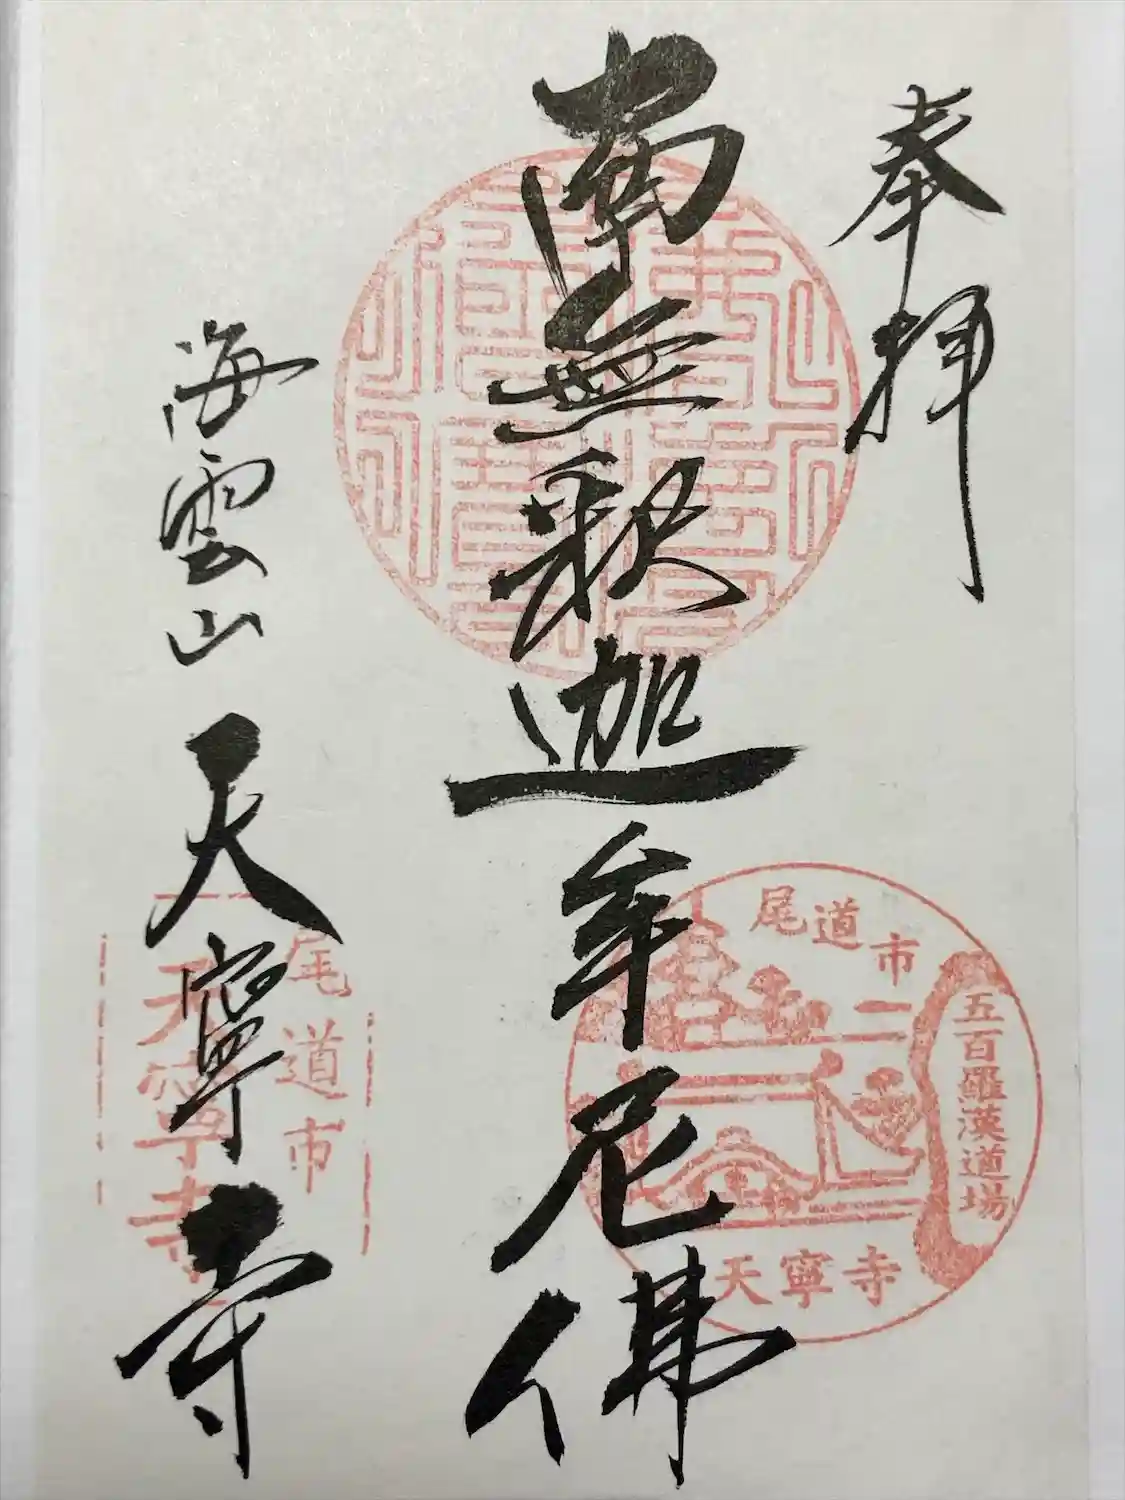 奉拝
南無釈迦牟尼佛
海雲山天寧寺
尾道市
五百羅漢道場
天寧寺
尾道市
天寧寺